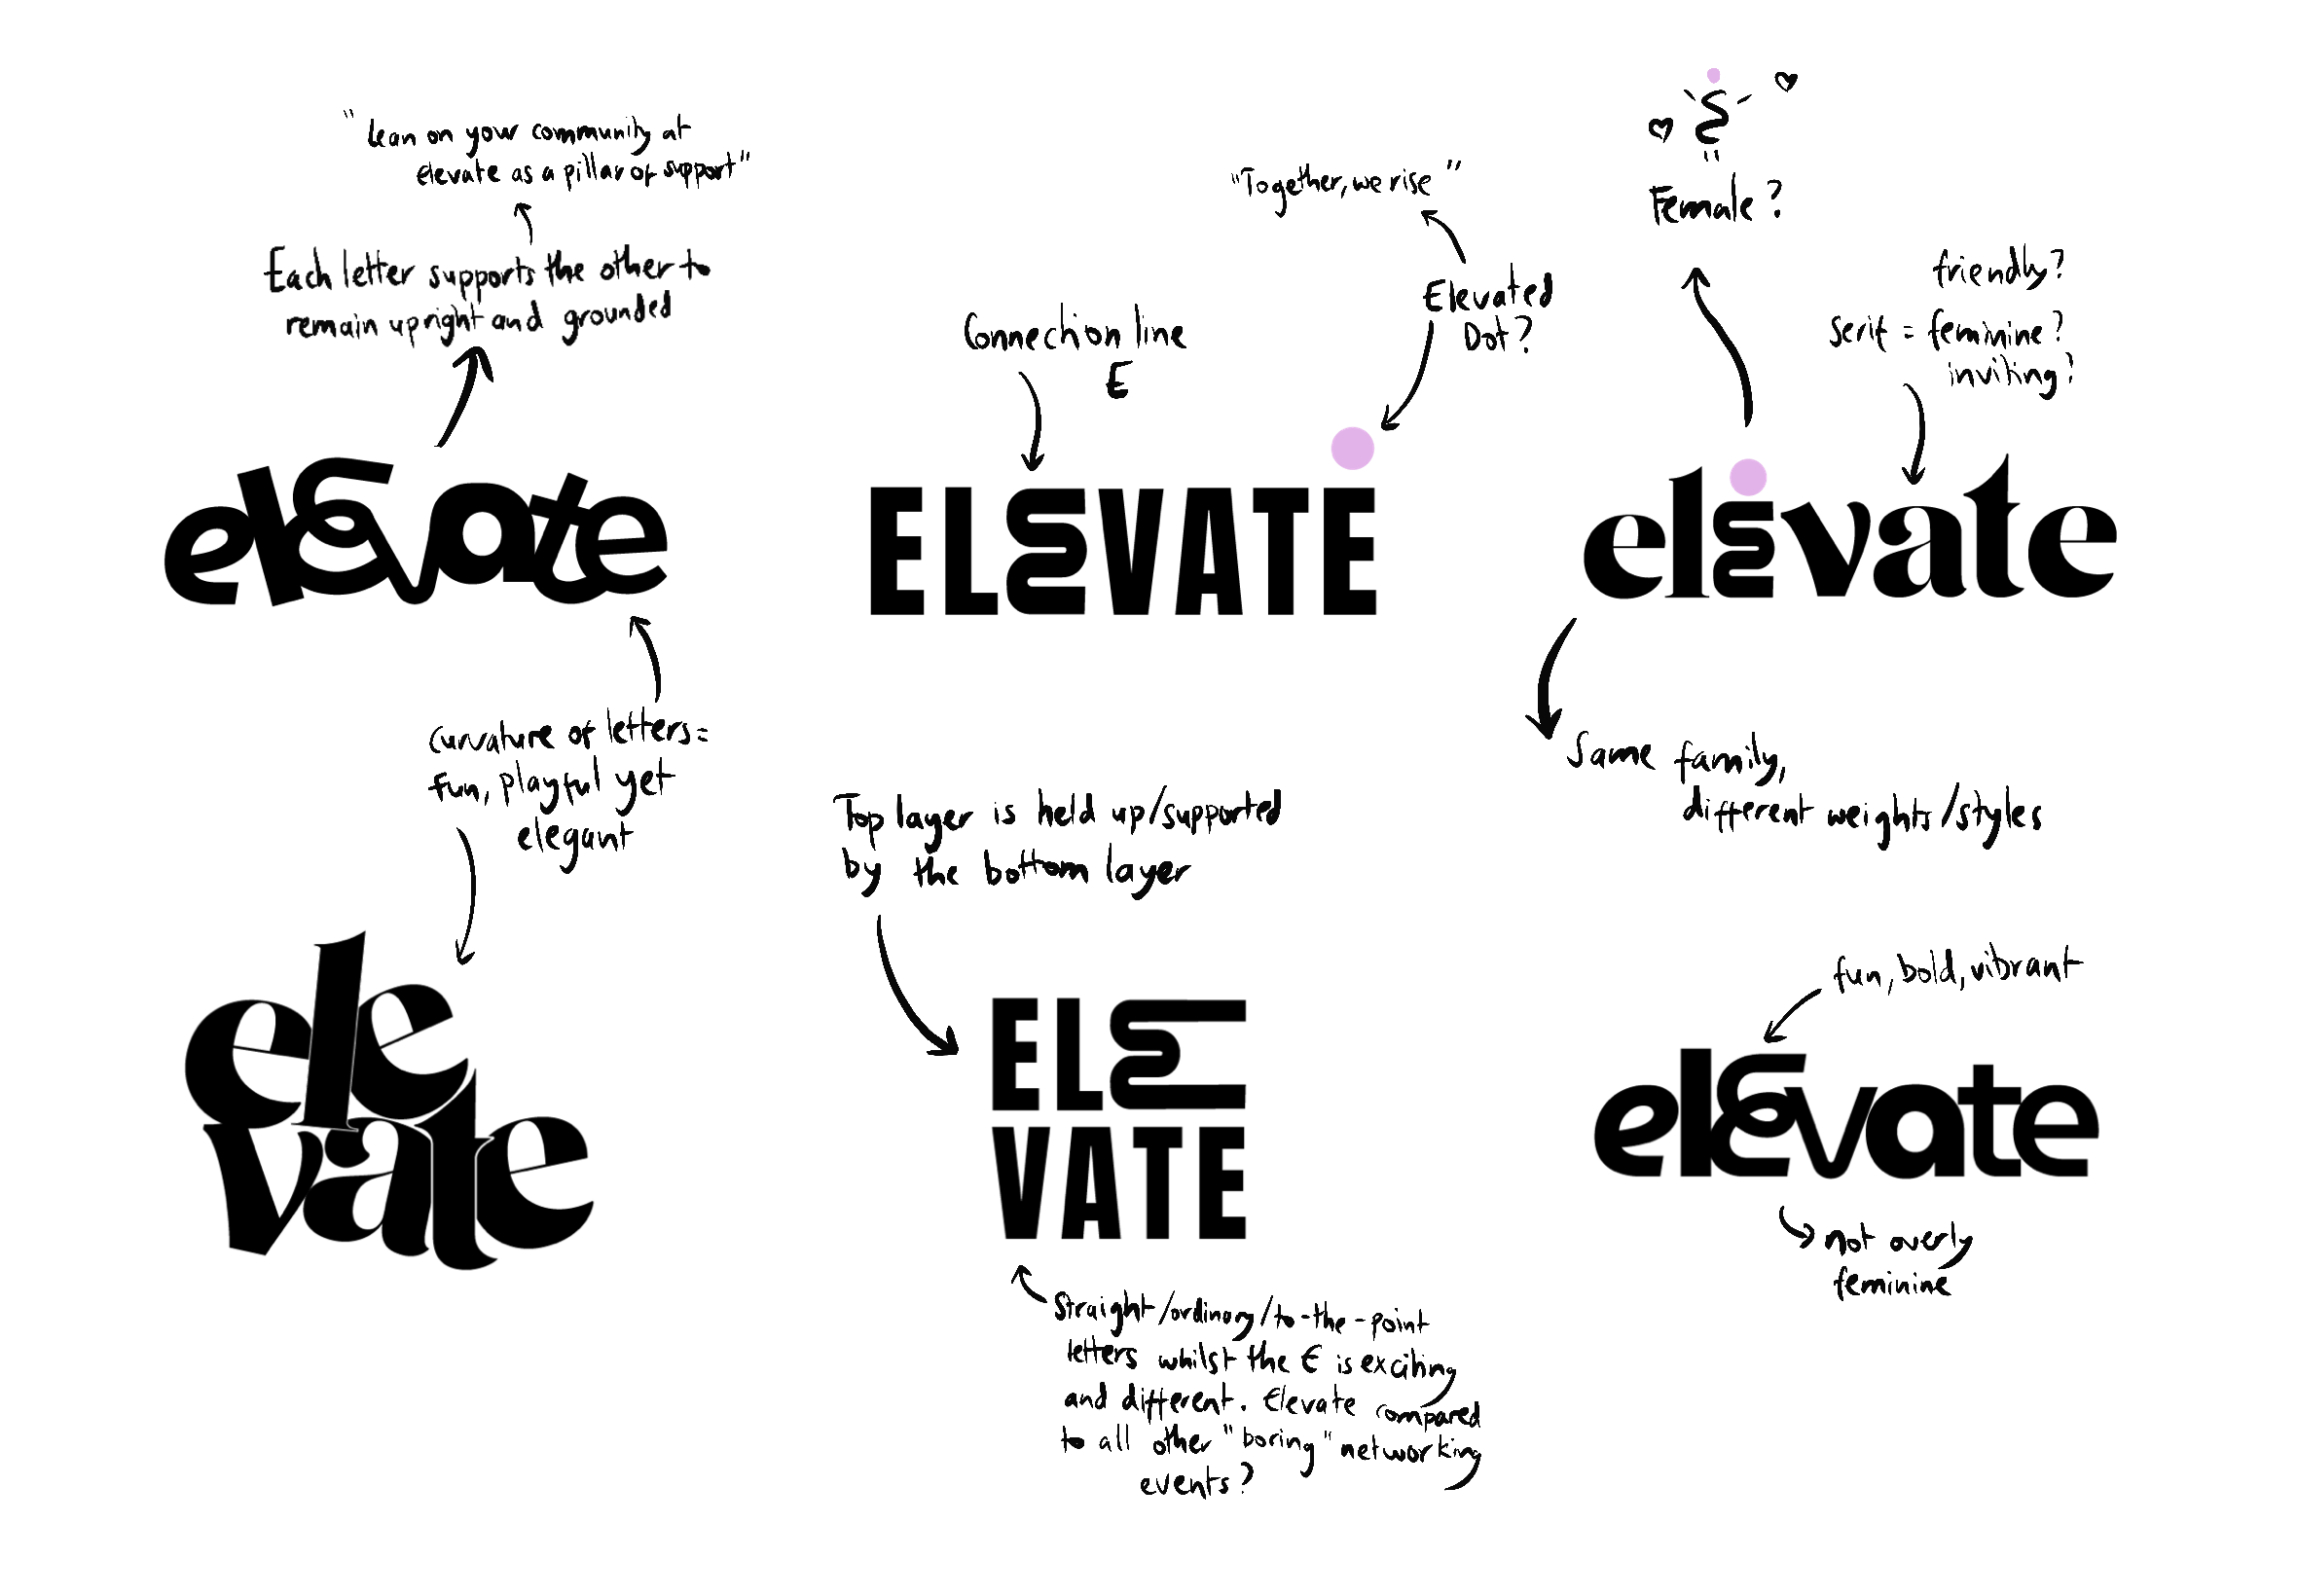 "Lean on your community at
elevate as a pillar of support"
Each letter supports the other to
remain upright and grounded
elevate
curvature of letters =
fun, playful yet
elegant
ele
vate
"Together, we rise"
Elevated
Dot?
Connection line
E
ELEVATE
Top layer is held up/supported
by the bottom layer
ELE
VATE
Straight/ordinary/to-the-point
letters whilst the E is exciting
and different. Elevate compared
to all other "boring" networking
events?
Female?
friendly?
Serif = feminine?
inviting?
elevate
Same family,
different weights/styles
fun, bold, vibrant
elevate
not overly
feminine